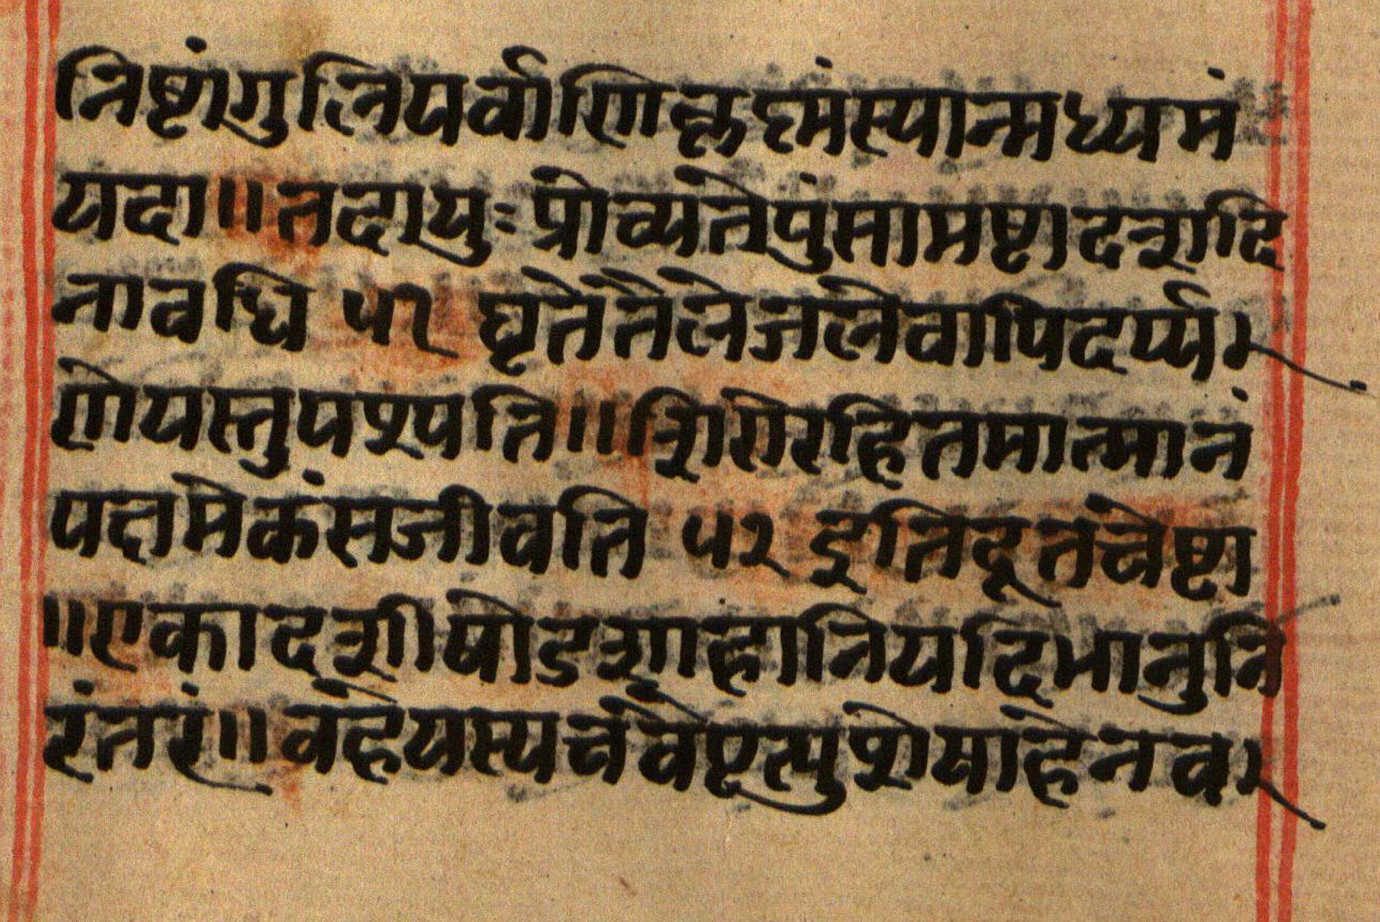 तिष्टांगुलियर्वाणिलघ्मंस्यान्मध्यमं
यदा॥तदायुःप्रोच्यतेपुंसामष्टादशदि
नावधि ५१ घृतेतैलेजलेवापिदर्प्य।
णेयस्तुपश्पति॥शिरोरहितमात्मानं
पक्षमेकंसजीवति ५२ इतिदूतचेष्टा
॥एकादशीषोडशाहानियदिभानुनि
रंतरं॥वहेयस्यचेवे शेषाहेनव।